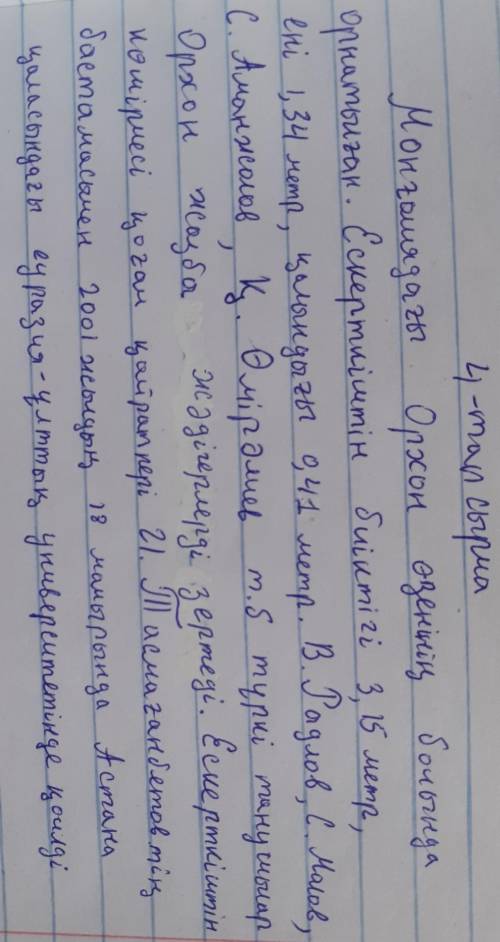 4-тарсырма
Монғолиядағы Орхон өзенінің бойында
орнатылған. Ескерткіштін биіктігі 3,15 метр,
ені 1,34 метр, қалындығы 0,41 метр. В. Радлов, С. Малов,
С. Аманжолов, Қ. Өмірәлиев т.б түркі танушылар
Орхон жазба жәдігерлерді зертеді. Ескерткіштін
көшірмесі қоғам қайраткері И. Тасмағанбетовтің
бастамасымен 2001 жылдың 18 мамырында Астана
қаласындағы еуразия-ұлттық университетінде қойлді